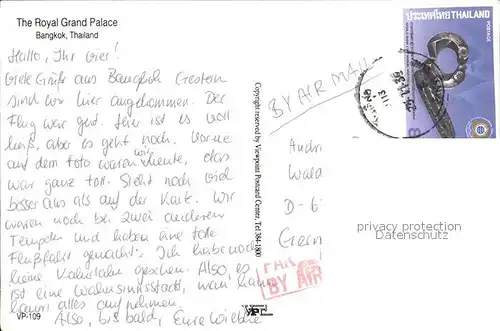 The Royal Grand Palace
Bangkok, Thailand
Hallo, Ihr vier!
Viele Grüße aus Bangkok. Gestern
sind wir hier angekommen. Der
Flug war gut. Hier ist es voll
heiß, aber es geht noch. Vorne
auf dem Foto waren wir heute, das
war ganz toll. Sieht noch viel
besser aus als auf der Karte. Wir
waren noch bei zwei anderen
Tempeln und haben eine tolle
Flußfahrt gemacht. Ich habe noch
keine Kakerlaken gesehen. Also, es
ist eine Wahnsinnsstadt, man kann
kaum alles aufnehmen.
Also, bis bald, Eure Wiebke
VP-109
Copyright reserved by Viewpoint Postcard Center, Tel 384-1800
VPC
BY AIR MAIL
ประเทศไทย THAILAND
POSTAGE
8
Andr
Wald
D-6
Germ
PAR
BY AIR
privacy protection
watermark